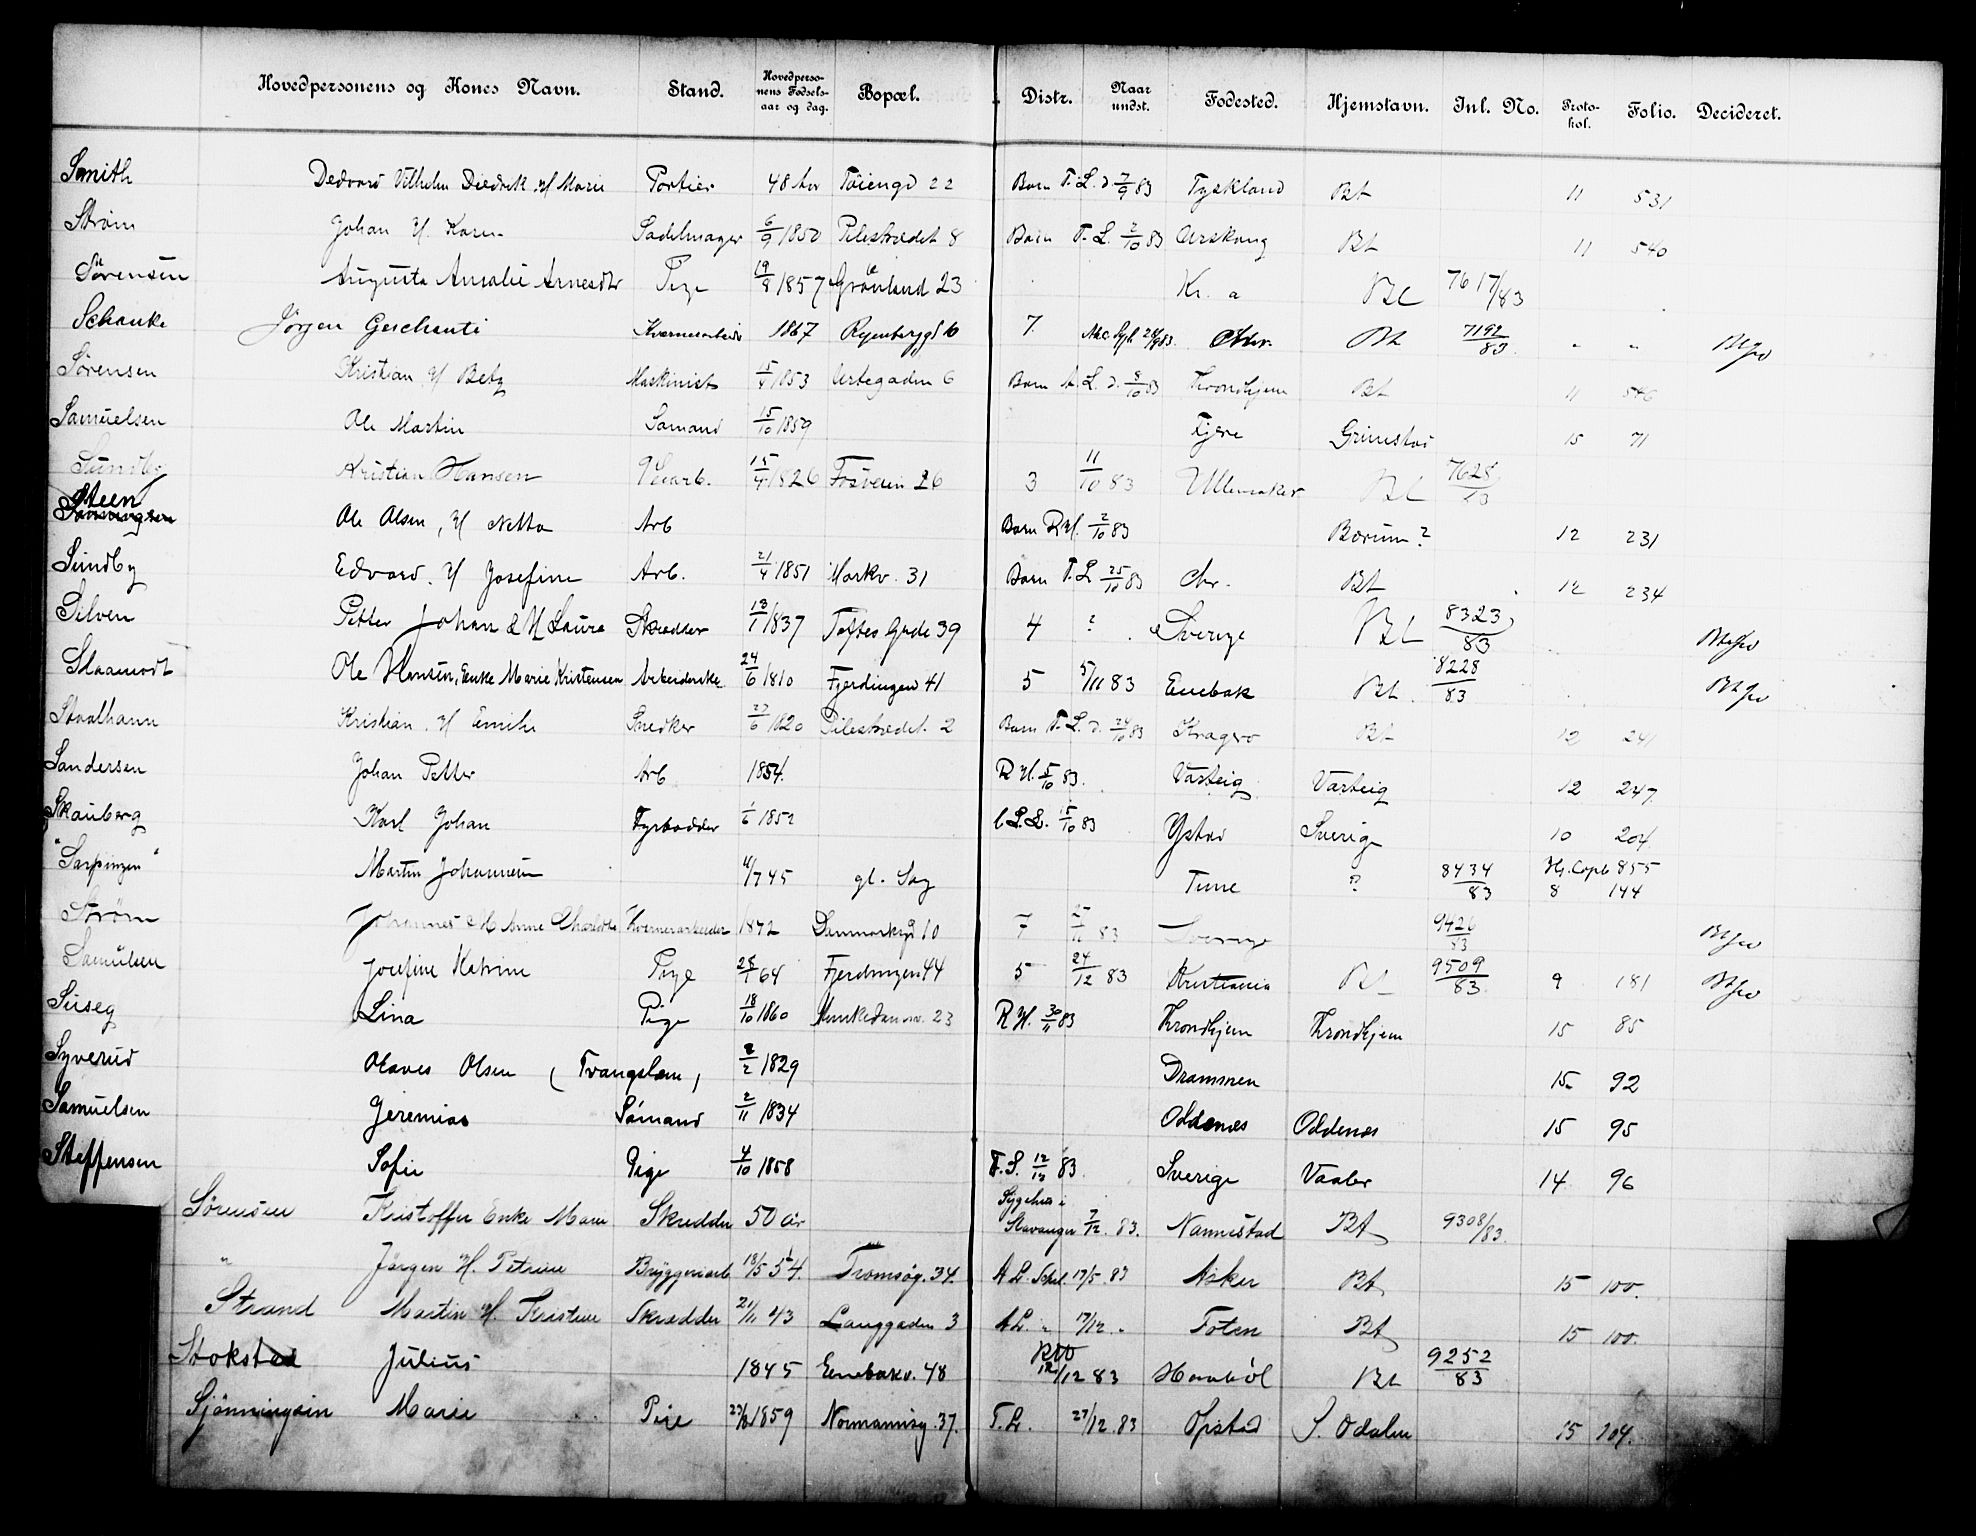 Hovedpersonens og Kones Navn. Stand. Hovedpersonens Fødselsaar og dag. Bopæl. Distr. Naar undst. Fødested. Hjemstavn. Inl. No. Protokol. Folio. Decideret.
Smith Vilhelm Diedrik, H Marie Portier 48 Aar Tøiengd 22 Barn T. L. d. 7/9 83 Tyskland Bt 11 531
Strøm Johan H. Karen Sadelmager 6/9 1850 Pilestrædet 8 Barn T. L. 2/10 83 Urskoug Bt 11 540
Sörensen Augusta Amalie Arnesdtr Pige 19/8 1857 Grönland 23 Kr. a Bt 7617/83
Schanke Jörgen Geschanti 1867 Ryenbergg 10 7. Chr. Bt 7192/83 " "
Sørensen Kristian H Betzy Maskinist 1853 Urtegaden 6 Barn A. L. d. 8/10 83 Throndhjem Bt 11 546
Samuelsen Ole Martin Sømand 15/10 1859 Fjære Grimstad 15 71
Sundby Kristian Hansen 15/4 1826 Fossveien 26 3 11/10 83 Ullensaker Bt 7628/83
Steen Ole Olsen, H Netta Arb Barn R H. 2/10 83 Bærum? 12 231
Sundby Edvard. H Josefine Arb. 21/4 1851 Markv. 31 Barn T. L 25/10 83 Chr. Bt 12 234
Silven Petter Johan & H Laura Skrædder 13/1 1837 Toftes Gade 39 4 ? Sverige Bt 8323/83
Ole Hansen, Enke Marie Kristensen Arbeiderske 24/6 1810 Fjerdingen 41 5 5/11 83 Enebak Bt 8228/83
Staalhann Kristian. H Emilie Snedker 1820 Pilestrædet. 2 Barn T. L. d. 24/10 83 Kragerø Bt 12 241
Sandersen Johan Petter Arb 1854. R H. 5/10 83. Varteig Varteig 12 247.
Skauberg Karl Johan Fyrbødder 1/6 1852 15/10 83 Ystad Sverige 10 204.
"Sarpingen" Martin Johannesen 4/7 45 gl. Sag Tune ? 8434/83 855 8 144
Strøm Johannes & H Anne Charlotte 1842 Danmarksgd 10 7 83 Sverige 9426/83
Samuelsen Josefine Katrine Pige 28/1 64 Fjerdingen 44 5 24/12 83 Kristiania Bt 9509/83. 9 181
Suseg Lina Pige 18/10 1860 23 R H. 30/11 83 Throndhjem Throndhjem 15 85
Syverud Olaves Olsen (Tvangslem) 2/2 1829 Drammen 15. 92
Samuelsen Jeremias Sömand 2/11 1834 Oddenæs Oddenæs 15 95
Steffensen Sofie Pige 4/10 1858 T. L. 12/12 83. Sverige Vaaler 14. 96
Sørensen Kristoffer Enke Marie Skrædder 50 aar Sygehus i Stavanger 7/12. 83. Nannestad Bt 9308/83.
" Jörgen H. Petrine Bryggeriarb 18/5 54. Tromsög. 34. A L. 17/5. 83 Asker Bt 15 100.
Strand Martin H. Kristine Skrædder 21/11 43 Langgaden 3 A L. " 17/12. " Toten Bt 15 100.
Stokstad Julius 1845 Enebakv. 48 12/12 83 Haabøl Bt 9252/83
Sjönningsen Marie Pige 1859 Normannsg. 37. T. L. 27/12. 83 Opstad S. Odalen 15 104.